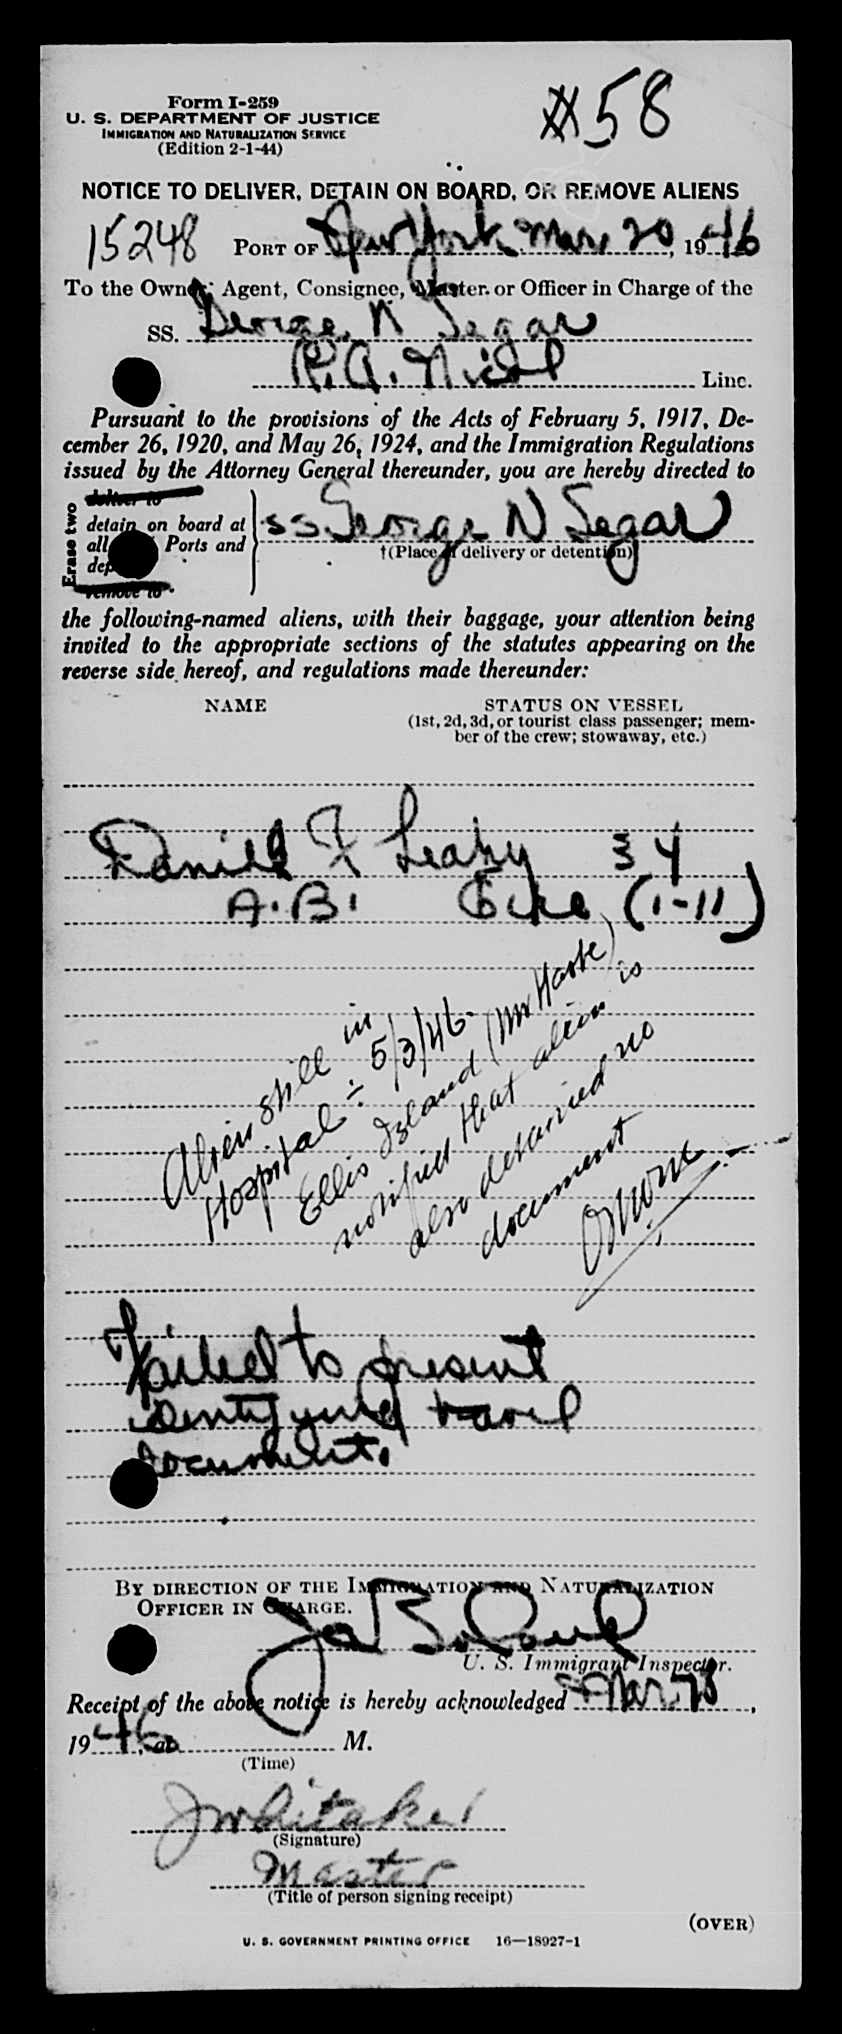 Form I-259
U. S. DEPARTMENT OF JUSTICE
IMMIGRATION AND NATURALIZATION SERVICE
(Edition 2-1-44)
#58
NOTICE TO DELIVER, DETAIN ON BOARD, OR REMOVE ALIENS
15248 PORT OF New York Mar, 20, 1946
To the Owner, Agent, Consignee, Master, or Officer in Charge of the
SS. George N Segar
R.A. Nicol Line.
Pursuant to the provisions of the Acts of February 5, 1917, De-
cember 26, 1920, and May 26, 1924, and the Immigration Regulations
issued by the Attorney General thereunder, you are hereby directed to
Erase two
deliver to
detain on board at
all Ports and
dep
remove to
SS George N Segar
†(Place of delivery or detention)
the following-named aliens, with their baggage, your attention being
invited to the appropriate sections of the statutes appearing on the
reverse side hereof, and regulations made thereunder:
NAME
STATUS ON VESSEL
(1st, 2d, 3d, or tourist class passenger; mem-
ber of the crew; stowaway, etc.)
Daniel F Leahy 34
A.B. Eire (1-11)
Alien still in
Hospital - 5/3/46.
Ellis Island (Mr Harte)
notified that alien is
also detained no
document
Failed to present
identifying travel
document.
BY DIRECTION OF THE IMMIGRATION AND NATURALIZATION
OFFICER IN CHARGE.
U. S. Immigrant Inspector.
Receipt of the above notice is hereby acknowledged Mar,
1946, at M.
(Time)
J Whitaker
(Signature)
Master
(Title of person signing receipt)
(OVER)
U. S. GOVERNMENT PRINTING OFFICE 16—18927-1